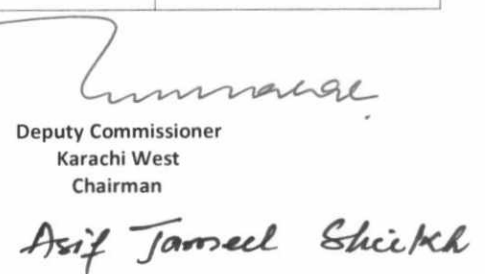 Deputy Commissioner
Karachi West
Chairman
Asif Jameel Sheikh